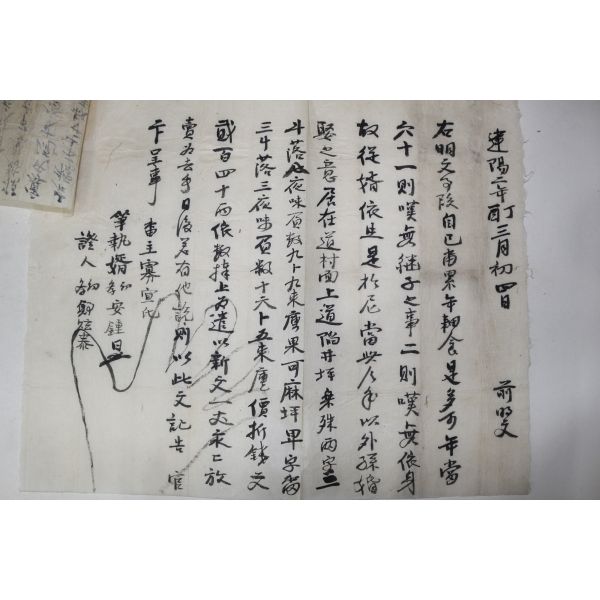 建陽二年酉丁三月初四日 前明文
右明文事段自己畓累年耕食是多可年當
六十一則嘆無継子之事二則嘆無依身
故從婿依生是於尼當此人手以外孫婚
娶之意居在道村面上道陷井坪乗殊兩字三
斗落 夜味百數九卜九束廛果可麻坪 字畓
三斗落三夜味百數十六卜五束廛價折錢文
貳百四十兩依数捧上為遣以新文一丈永永放
賣為去乎日後若有他談則以此文記告官
卞呈事 畓主寡宣氏
筆執婿幼學安鍾
證人幼學